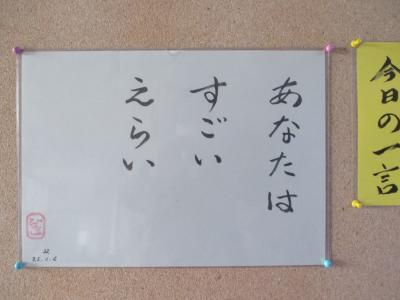 今日の一言
あなたは
すごい
えらい